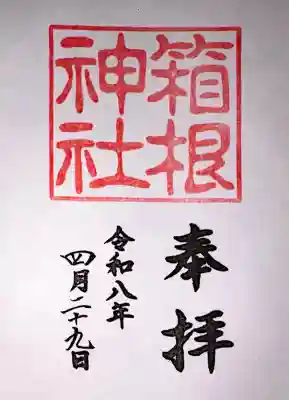 箱根
神社
奉拝
令和八年
四月二十九日